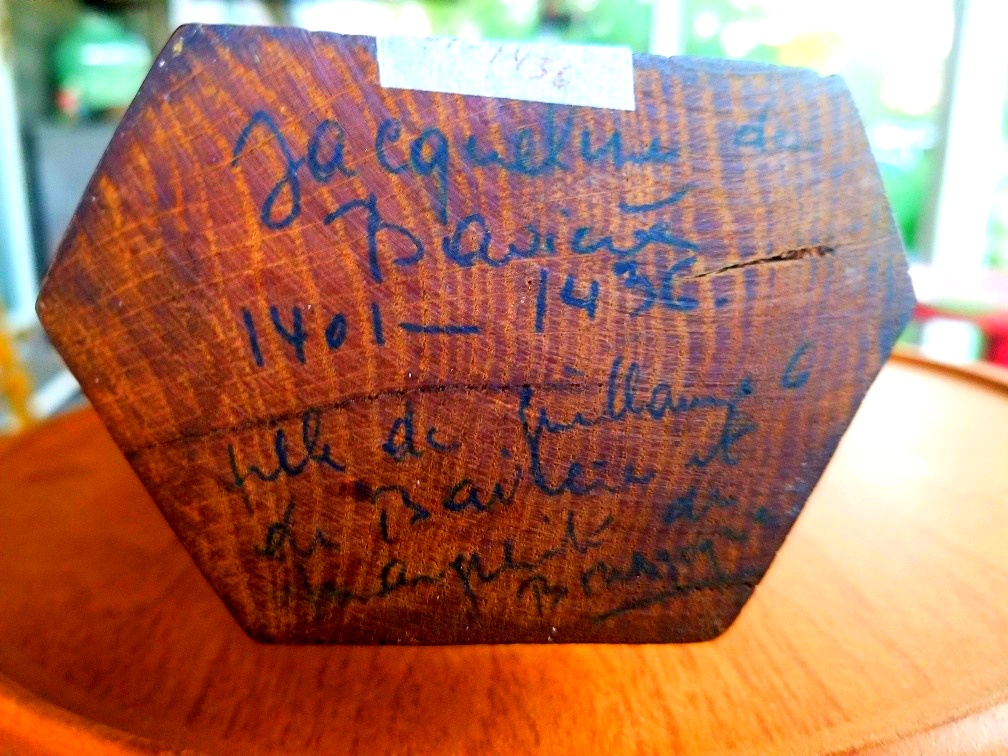 1436
Jacqueline de
Bavière
1401 — 1436.
fille de Guillaume 6
de Bavière et
Marguerite de
Bourgogne